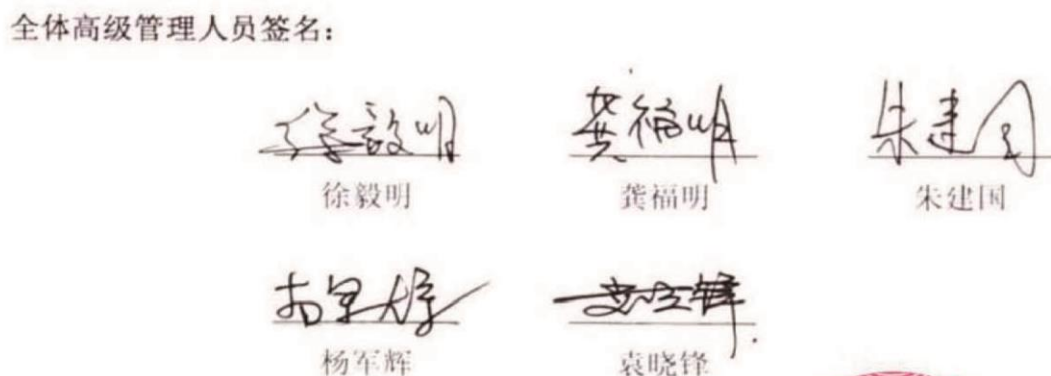 全体高级管理人员签名：
徐毅明 龚福明 朱建国
徐毅明 龚福明 朱建国
杨军辉 袁晓锋